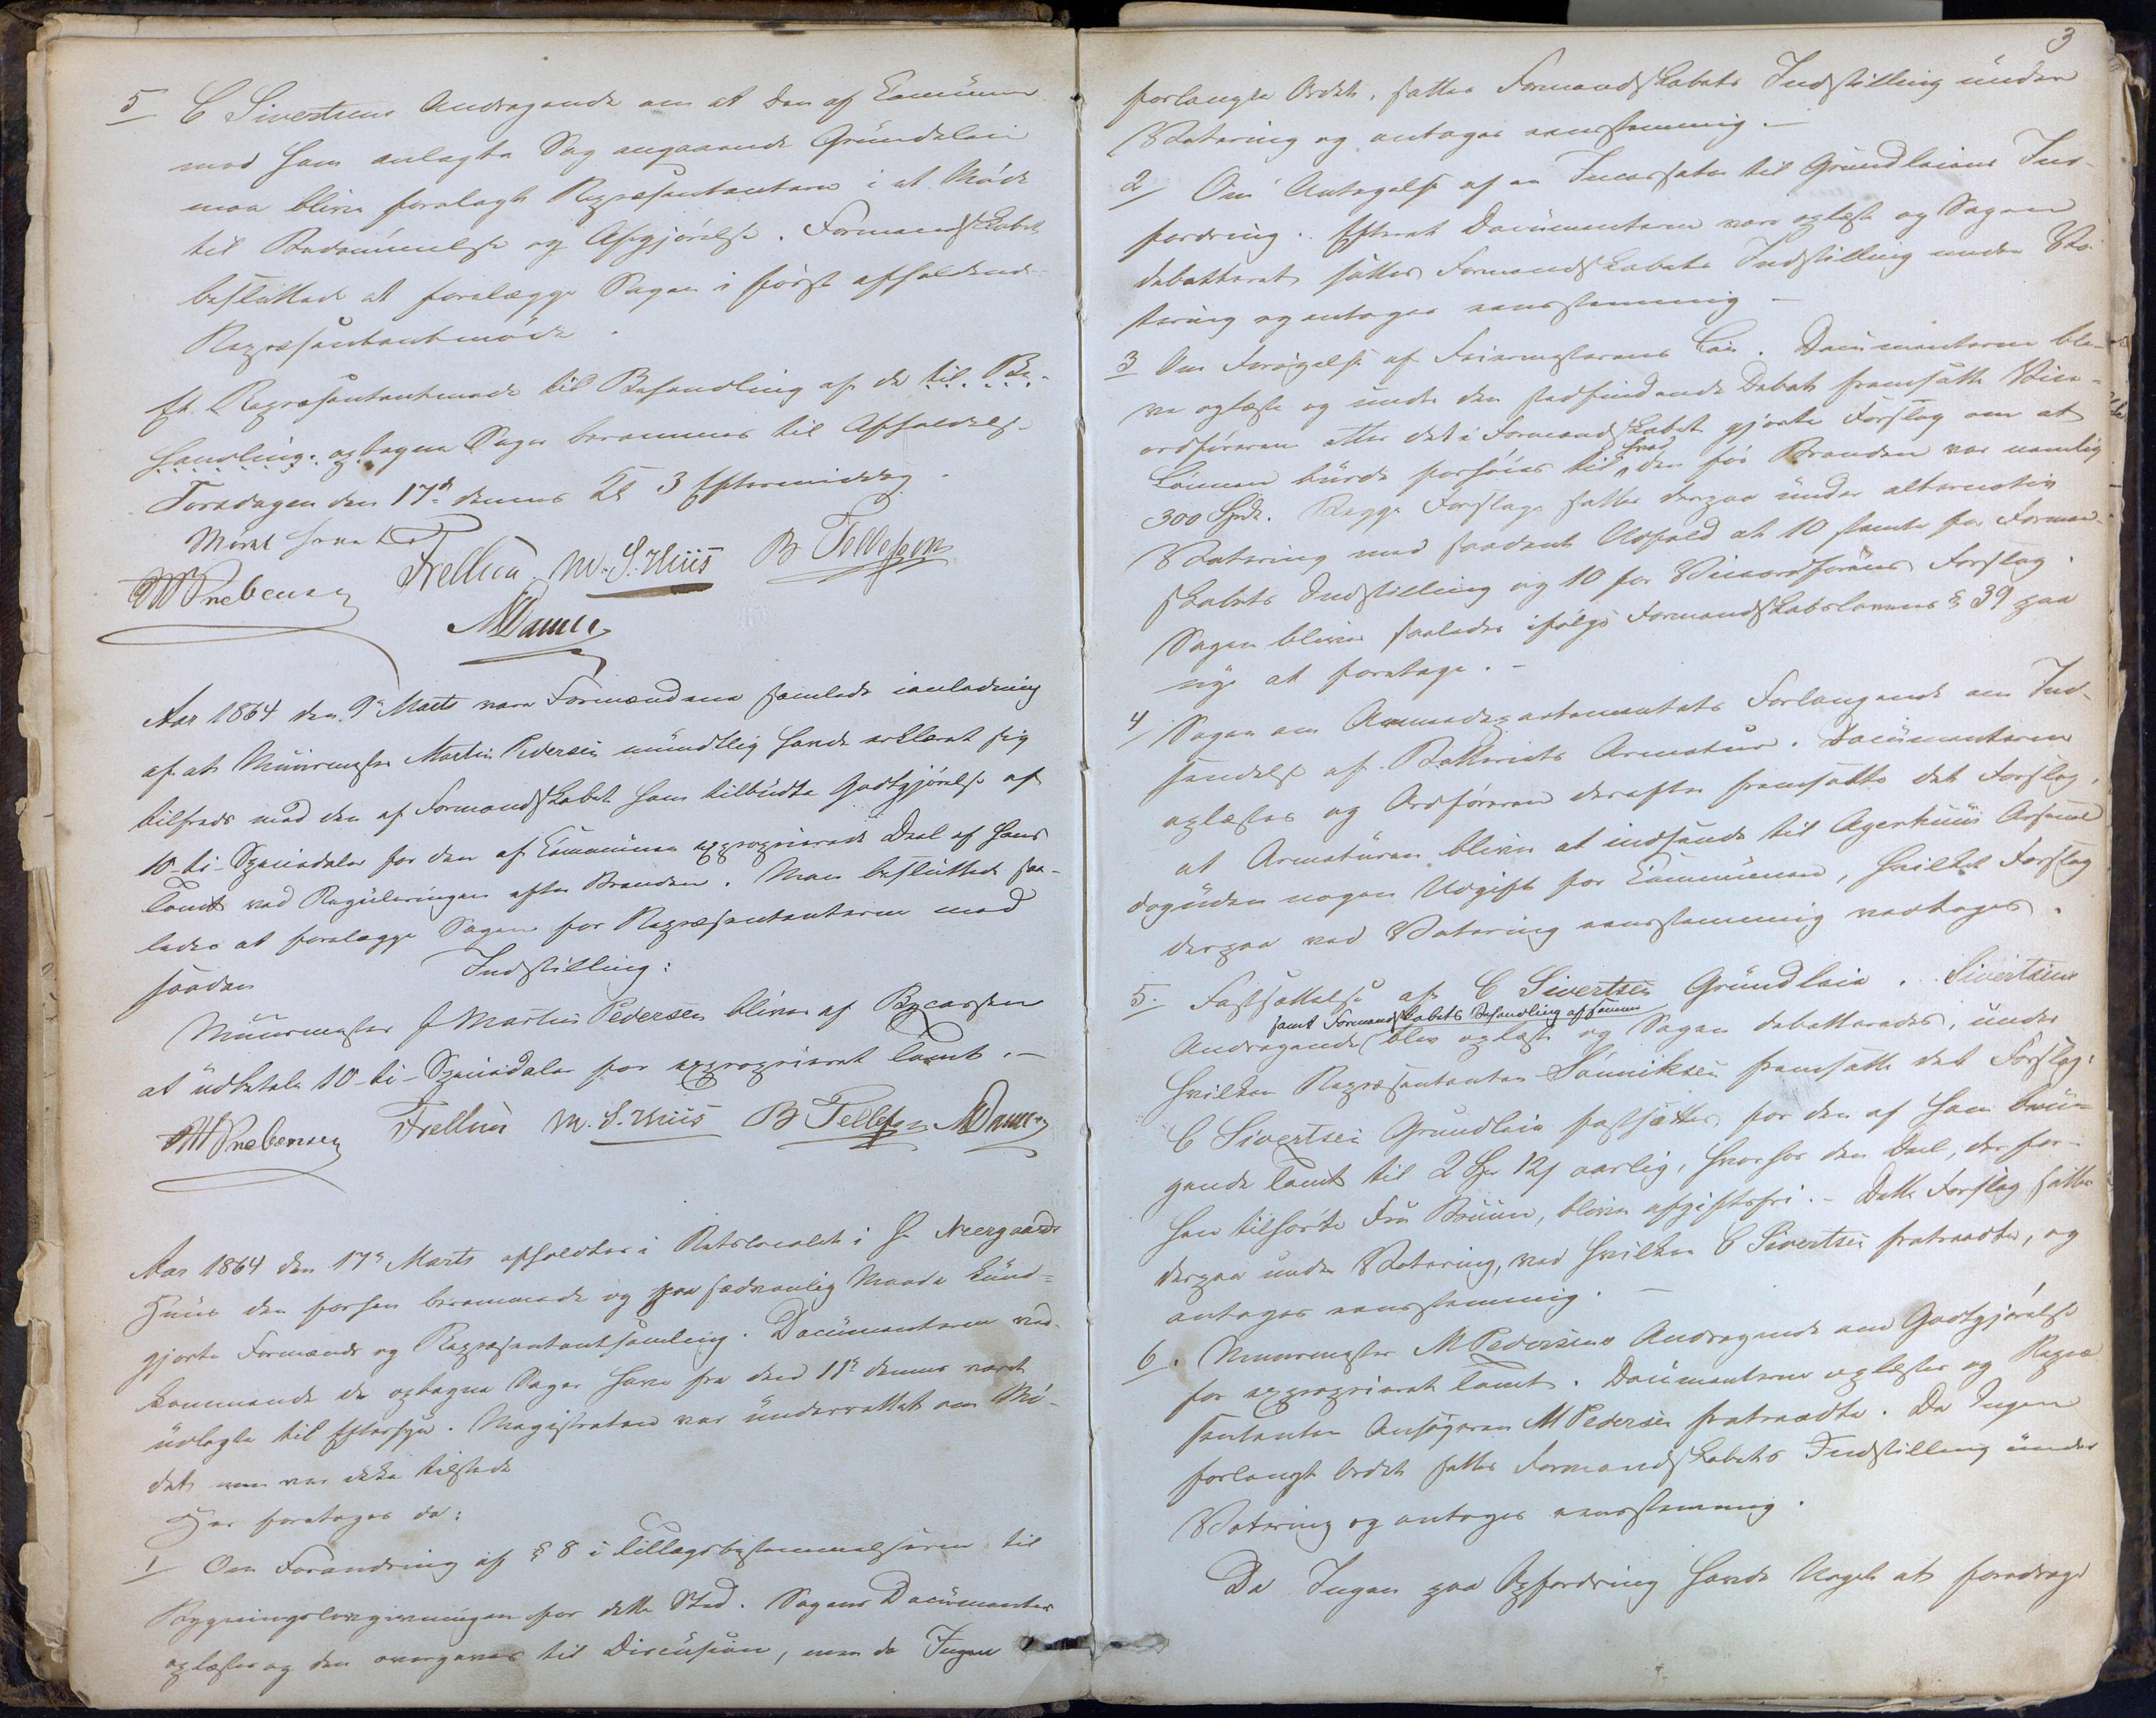 5 C Sivertsens Andragende om at den af Comünen
mod ham anlagte Sag angaaende Gründeleie
maa bliver forelagt Repræsentanterne i et Møde
til Bedømmelse og Afgjørelse. Formandskabet
besluttede at forelægge Sagen i først afholdende
Repræsentantmøde.
Et Repræsentantmøde til Behandling af de til Be-
handling optagne Sager berammes til Afholdelse
Torsdagen den 17de dennes Kl 3 Eftermiddag.
Mørch
MPrebensen Frellsen M. S. Huus B Tellefsen
Aar 1864 den 9de Marts vare Formændene samlede ianledning
af at Muurmester Martin Pedersen mündtlig havde erklæret sig
tilfreds med den af Formandskabet ham tilbüdte Godtgjørelse af
10-ti-Speciedaler for den af Comünen exproprierede Deel af hans
Tomt ved Reguleringen efter Branden. Man besluttede saa-
ledes at forelægge Sagen for Repræsentanterne med
saadan Indstilling:
Müürmester J Martin Pedersen bliver af Bycassen
at üdbetale 10-ti-Speciedaler for exproprieret Tomt. -
MPrebensen M. S. Huus B Tellefsen
Aar 1864 den 17de Marts afholdtes i Retslocalet i H Neergaards
Huus den forhen berammede og paa sædvanlig Maade künd-
gjorte Formænds og Repræsentantsamling. Documenterne ved-
kommende de optagne Sager have fra den 11te dennes været
üdlagte til Eftersyn. Magistraten var ünderrettet om Mø-
det men var ikke tilstede
Her foretoges da:
1 Om Forandring af § 8 i Tillægsbestemmelserne til
Bygningslovgivningen for dette Sted. Sagens Documenter
oplæstes og den overgaves til Discüsion, men da Ingen
3
forlangte Ordet, sattes Formandskabets Indstilling ünder
Votering og antoges eensstemmig. -
2/ Om Antagelse af en Incassator til Grundleiens Ind-
fordring. Efterat Documenterne vare oplæste og Sagen
debatteret sattes Formandskabets Indstilling under Vo-
tering og antoges eensstemmig -
3 Om Forøgelse af Feiermesterens Løn. Documenterne ble-
ve oplæste og ünder den stedfindende Debat fremsatte Vice-
ordføreren etter det i Formandskabet gjorte Forslag om at
Lønnen bürde forhøies til hvad den før Branden var nemlig
300 Spd. Begge Forslage sattes derpaa ünder alternativ
Votering med saadant Udfald at 10 stemte for Formand-
skabets Indstilling og 10 for Viceordførens Forslag.
Sagen bliver saaledes ifølge Formandskabslovens § 39 paa
nye at foretage. -
4/ Sagen om Armeedepartementets Forlangende om Ind-
sendelse af Batteriets Armatur. Documenterne
oplæstes og Ordføreren derefter fremsatte det Forslag,
at Armatüren bliver at indsende til Agerhuus Arsenal
dog üden nogen Udgift for Commünen, hvilket Forslag
derpaa ved Votering eensstemmig vedtoges.
5. Fastsættelse af C Sivertsen Gründleie. Sivertsens
samt Formandskabets Behandling af samme
Andragende blev oplæst og Sagen debatteredes, ünder
hvilken Repræsentanten Sønniksen fremsatte det Forslag:
C Sivertsen Grundleie fastsættes for den af ham brü-
gende Tomt til 2 Spd 12 s aarlig, hvorfor den Deel, der for-
hen tilhørte Frü Brüün, bliver afgiftsfri. - Dette Forslag sattes
derpaa ünder Votering, ved hvilken C Sivertsen fratraadte, og
antoges eensstemmig. -
6. Muurmester M Pedersens Andragende om Godtgjørelse
for exproprieret Tomt. Documenterne oplæstes og Repræ
sentanten Ansøgeren M Pedersen fratraadte. Da Ingen
forlangte Ordet sattes Formandskabets Indstilling ünder
Votering og antoges eensstemmig.
Da Ingen paa Opfordring havde Noget at foredrage